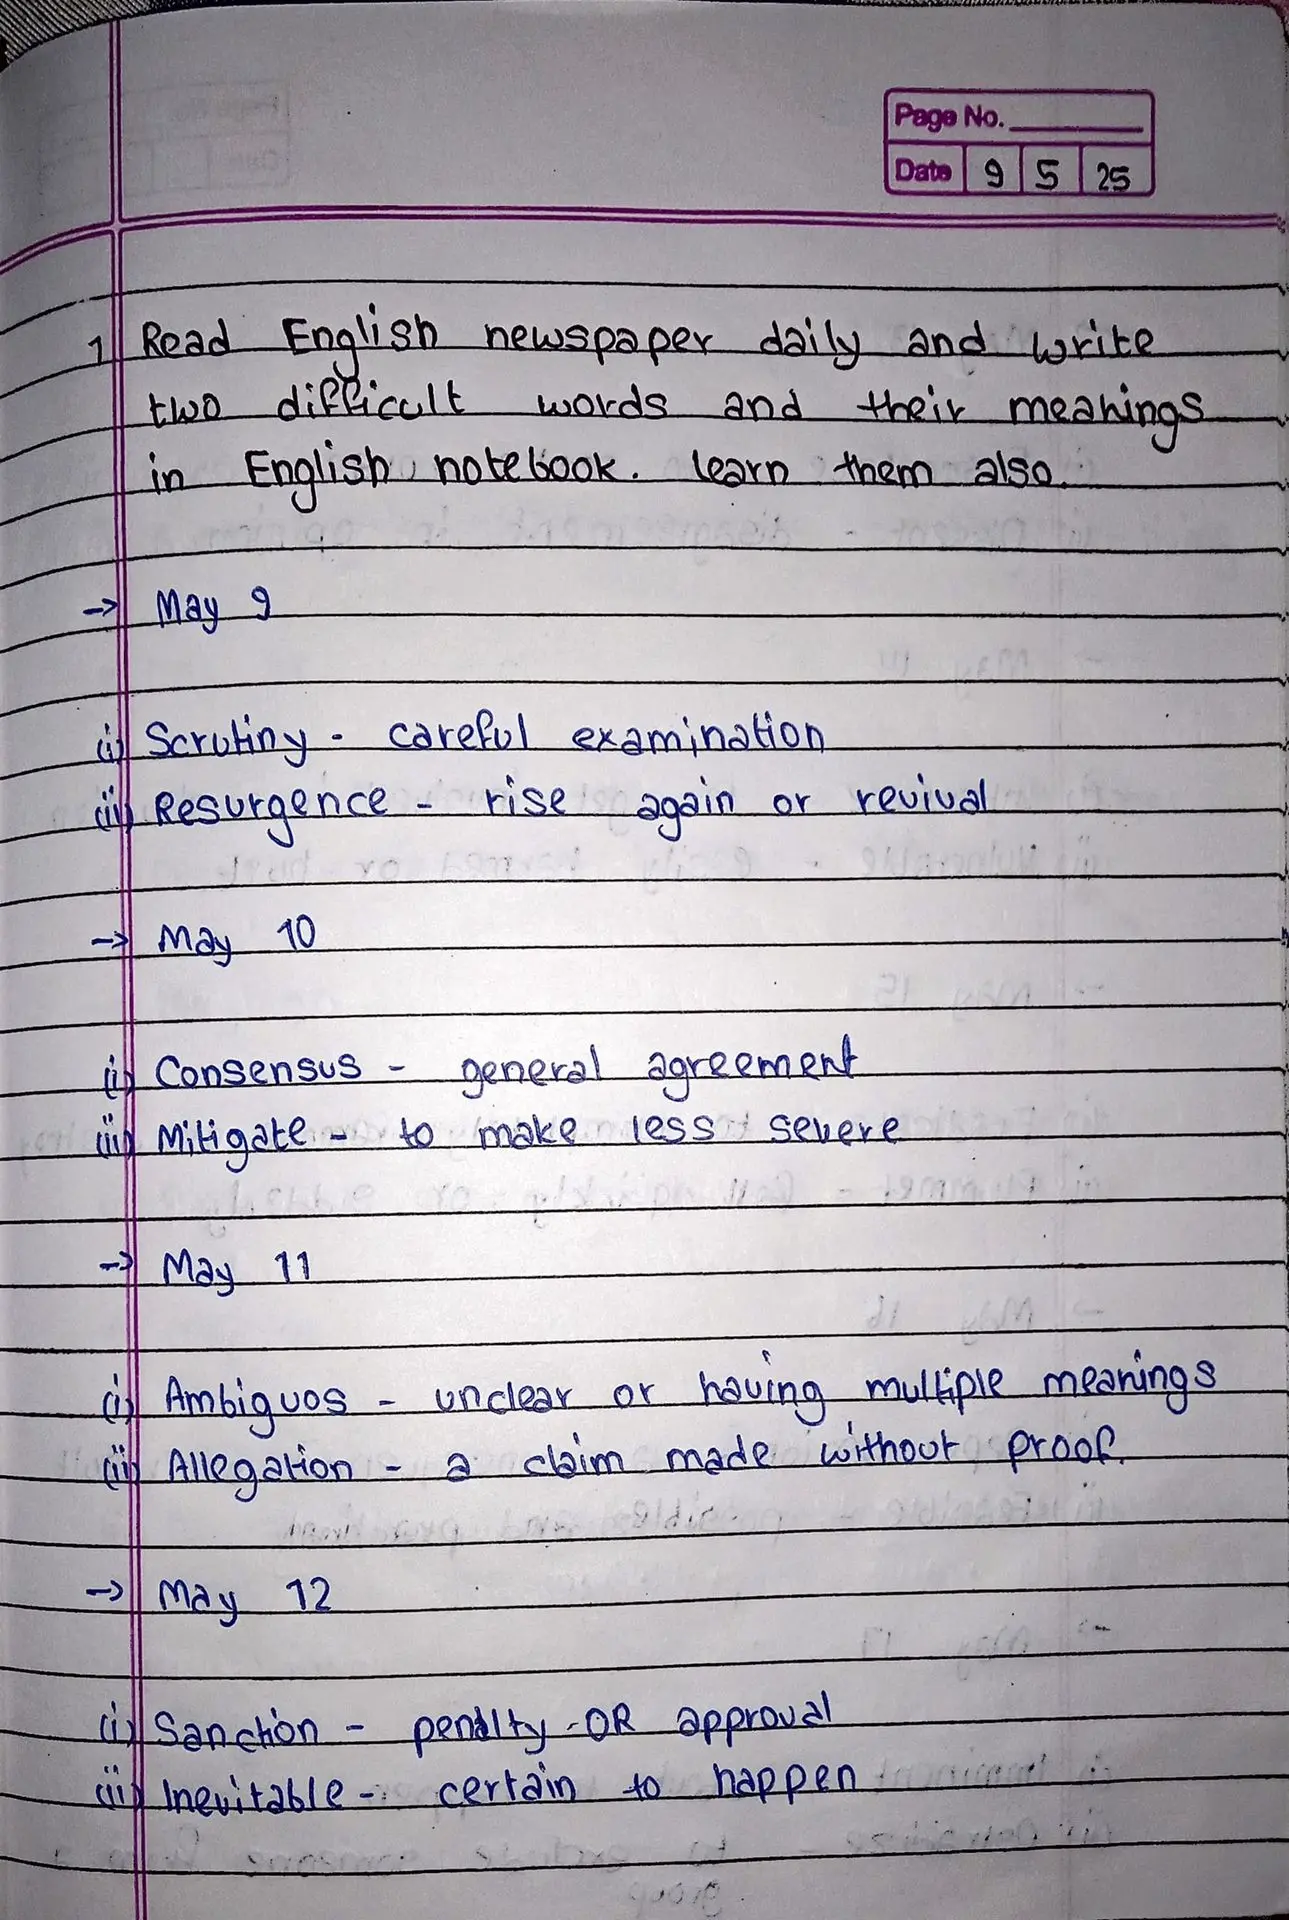 Page No.
Date 9 5 25
1 Read English newspaper daily and write
two difficult words and their meanings
in English notebook. learn them also.
→ May 9
(i) Scrutiny - careful examination
(ii) Resurgence - rise again or revival
→ May 10
(i) Consensus - general agreement
(ii) Mitigate - to make less severe
→ May 11
(i) Ambiguos - unclear or having multiple meanings
(ii) Allegation - a claim made without proof.
→ May 12
(i) Sanction - penalty OR approval
(ii) Inevitable - certain to happen